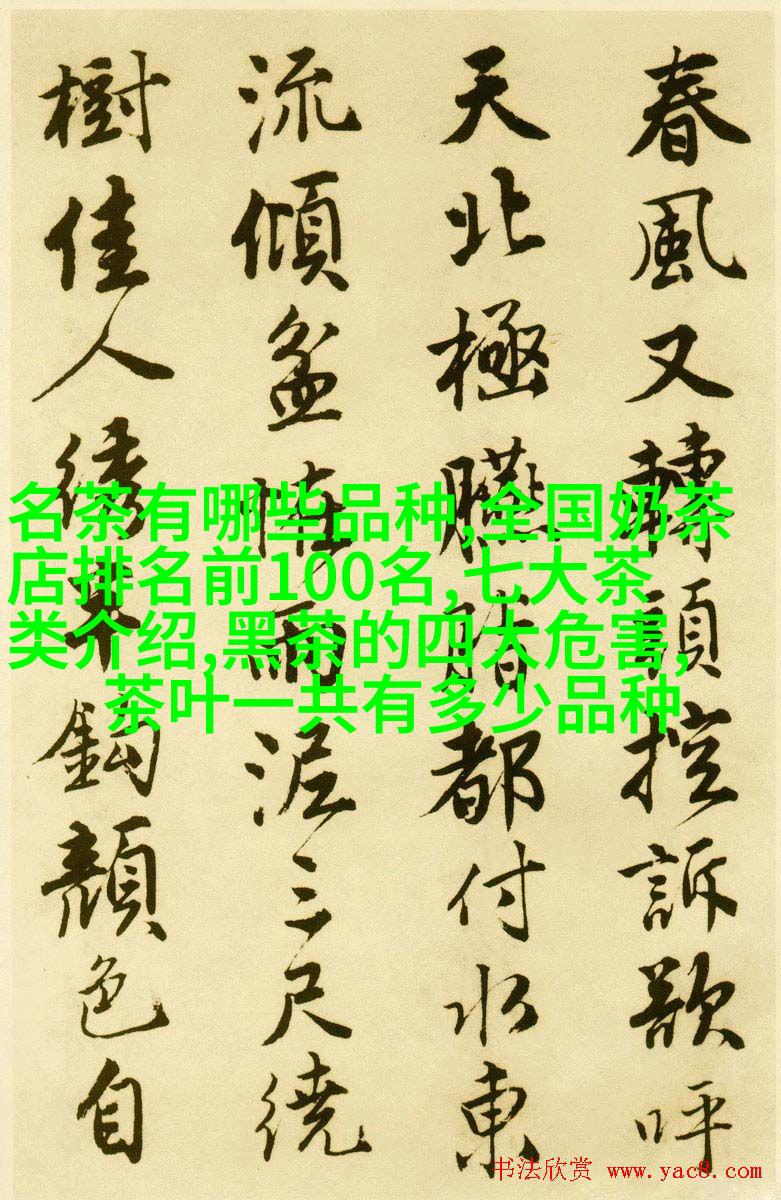 春風又轉頭控訴呼
天北極都付水東
流傾盆雨泥三尺繞
樹佳人綉鈎顏色自
名茶有哪些品种,全国奶茶
店排名前100名,七大茶
类介绍,黑茶的四大危害,
茶叶一共有多少品种
书法欣赏 www.yac8.com